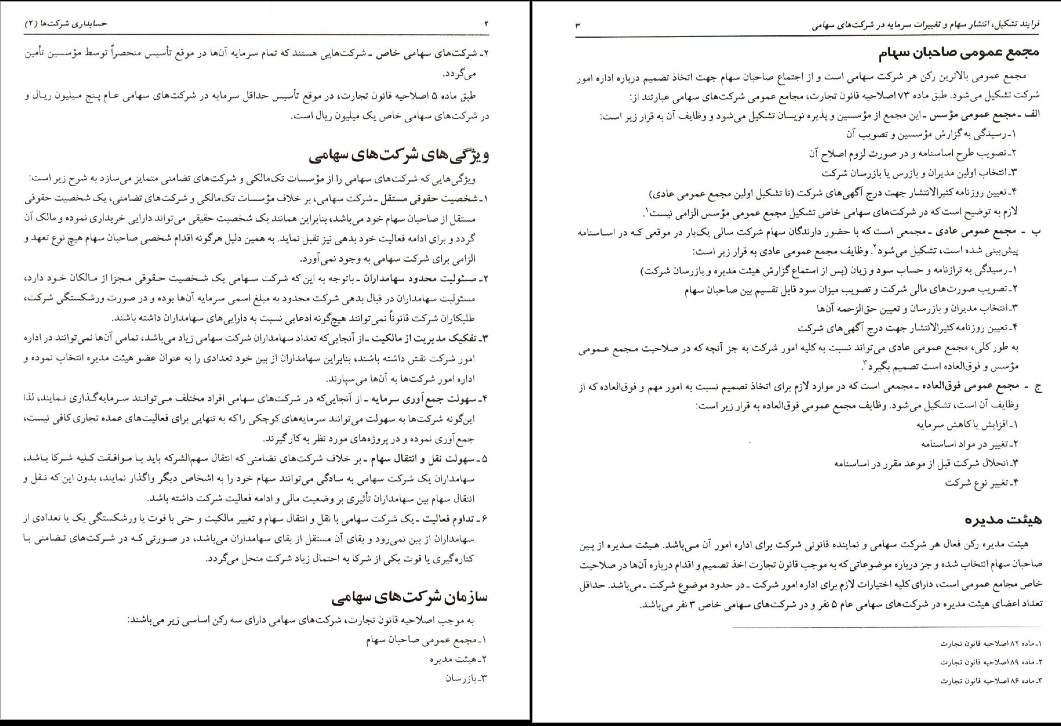 ۲
حسابداری شرکت‌ها (۲)
۲ـ شرکت‌های سهامی خاص ـ شرکت‌هایی هستند که تمام سرمایه آن‌ها در موقع تأسیس منحصراً توسط مؤسسین تأمین
می‌گردد.
طبق ماده ۵ اصلاحیه قانون تجارت، در موقع تأسیس حداقل سرمایه در شرکت‌های سهامی عام پنج میلیون ریال و
در شرکت‌های سهامی خاص یک میلیون ریال است.
ویژگی‌های شرکت‌های سهامی
ویژگی‌هایی که شرکت‌های سهامی را از مؤسسات تک‌مالکی و شرکت‌های تضامنی متمایز می‌سازد به شرح زیر است:
۱ـ شخصیت حقوقی مستقل ـ شرکت سهامی، بر خلاف مؤسسات تک‌مالکی و شرکت‌های تضامنی، یک شخصیت حقوقی
مستقل از صاحبان سهام خود می‌باشد، بنابراین همانند یک شخصیت حقیقی می‌تواند دارایی خریداری نموده و مالک آن
گردد و برای ادامه فعالیت خود بدهی نیز تقبل نماید. به همین دلیل هرگونه اقدام شخصی صاحبان سهام هیچ نوع تعهد و
الزامی برای شرکت سهامی به وجود نمی‌آورد.
۲ـ مسئولیت محدود سهامداران ـ باتوجه به این که شرکت سهامی یک شخصیت حقوقی مجزا از مالکان خود دارد،
مسئولیت سهامداران در قبال بدهی شرکت محدود به مبلغ اسمی سرمایه آن‌ها بوده و در صورت ورشکستگی شرکت،
طلبکاران شرکت قانوناً نمی‌توانند هیچ‌گونه ادعایی نسبت به دارایی‌های سهامداران داشته باشند.
۳ـ تفکیک مدیریت از مالکیت ـ از آنجایی‌که تعداد سهامداران شرکت سهامی زیاد می‌باشد، تمامی آن‌ها نمی‌توانند در اداره
امور شرکت نقش داشته باشند، بنابراین سهامداران از بین خود تعدادی را به عنوان عضو هیئت مدیره انتخاب نموده و
اداره امور شرکت‌ها به آن‌ها می‌سپارند.
۴ـ سهولت جمع‌آوری سرمایه ـ از آنجایی‌که در شرکت‌های سهامی افراد مختلف می‌توانند سرمایه‌گذاری نمایند، لذا
این‌گونه شرکت‌ها به سهولت می‌توانند سرمایه‌های کوچکی را که به تنهایی برای فعالیت‌های عمده تجاری کافی نیست،
جمع‌آوری نموده و در پروژه‌های مورد نظر به کار گیرند.
۵ـ سهولت نقل و انتقال سهام ـ بر خلاف شرکت‌های تضامنی که انتقال سهم‌الشرکه باید با موافقت کلیه شرکا باشد،
سهامداران یک شرکت سهامی به سادگی می‌توانند سهام خود را به اشخاص دیگر واگذار نمایند، بدون این که نقل و
انتقال سهام بین سهامداران تأثیری بر وضعیت مالی و ادامه فعالیت شرکت داشته باشد.
۶ـ تداوم فعالیت ـ یک شرکت سهامی با نقل و انتقال سهام و تغییر مالکیت و حتی با فوت یا ورشکستگی یک یا تعدادی از
سهامداران از بین نمی‌رود و بقای آن مستقل از بقای سهامداران می‌باشد، در صورتی که در شرکت‌های تضامنی با
کناره‌گیری یا فوت یکی از شرکا به احتمال زیاد شرکت منحل می‌گردد.
سازمان شرکت‌های سهامی
به موجب اصلاحیه قانون تجارت، شرکت‌های سهامی دارای سه رکن اساسی زیر می‌باشند:
۱ـ مجمع عمومی صاحبان سهام
۲ـ هیئت مدیره
۳ـ بازرسان
فرایند تشکیل، انتشار سهام و تغییرات سرمایه در شرکت‌های سهامی
۳
مجمع عمومی صاحبان سهام
مجمع عمومی بالاترین رکن هر شرکت سهامی است و از اجتماع صاحبان سهام جهت اتخاذ تصمیم درباره اداره امور
شرکت تشکیل می‌شود. طبق ماده ۷۳ اصلاحیه قانون تجارت، مجامع عمومی شرکت‌های سهامی عبارتند از:
الف ـ مجمع عمومی مؤسس ـ این مجمع از مؤسسین و پذیره نویسان تشکیل می‌شود و وظایف آن به قرار زیر است:
۱ـ رسیدگی به گزارش مؤسسین و تصویب آن
۲ـ تصویب طرح اساسنامه و در صورت لزوم اصلاح آن
۳ـ انتخاب اولین مدیران و بازرس یا بازرسان شرکت
۴ـ تعیین روزنامه کثیرالانتشار جهت درج آگهی‌های شرکت (تا تشکیل اولین مجمع عمومی عادی)
لازم به توضیح است که در شرکت‌های سهامی خاص تشکیل مجمع عمومی مؤسس الزامی نیست.۱
ب ـ مجمع عمومی عادی ـ مجمعی است که با حضور دارندگان سهام شرکت سالی یک‌بار در موقعی که در اساسنامه
پیش‌بینی شده است، تشکیل می‌شود.۲ وظایف مجمع عمومی عادی به قرار زیر است:
۱ـ رسیدگی به ترازنامه و حساب سود و زیان (پس از استماع گزارش هیئت مدیره و بازرسان شرکت)
۲ـ تصویب صورت‌های مالی شرکت و تصویب میزان سود قابل تقسیم بین صاحبان سهام
۳ـ انتخاب مدیران و بازرسان و تعیین حق‌الزحمه آن‌ها
۴ـ تعیین روزنامه کثیرالانتشار جهت درج آگهی‌های شرکت
به طور کلی، مجمع عمومی عادی می‌تواند نسبت به کلیه امور شرکت به جز آنچه که در صلاحیت مجمع عمومی
مؤسس و فوق‌العاده است تصمیم بگیرد.۳
ج ـ مجمع عمومی فوق‌العاده ـ مجمعی است که در موارد لازم برای اتخاذ تصمیم نسبت به امور مهم و فوق‌العاده که از
وظایف آن است، تشکیل می‌شود. وظایف مجمع عمومی فوق‌العاده به قرار زیر است:
۱ـ افزایش یا کاهش سرمایه
۲ـ تغییر در مواد اساسنامه
۳ـ انحلال شرکت قبل از موعد مقرر در اساسنامه
۴ـ تغییر نوع شرکت
هیئت مدیره
هیئت مدیره رکن فعال هر شرکت سهامی و نماینده قانونی شرکت برای اداره امور آن می‌باشد. هیئت مدیره از بین
صاحبان سهام انتخاب شده و جز درباره موضوعاتی که به موجب قانون تجارت اخذ تصمیم و اقدام درباره آن‌ها در صلاحیت
خاص مجامع عمومی است، دارای کلیه اختیارات لازم برای اداره امور شرکت ـ در حدود موضوع شرکت ـ می‌باشد. حداقل
تعداد اعضای هیئت مدیره در شرکت‌های سهامی عام ۵ نفر و در شرکت‌های سهامی خاص ۳ نفر می‌باشد.
۱ـ ماده ۸۲ اصلاحیه قانون تجارت
۲ـ ماده ۸۹ اصلاحیه قانون تجارت
۳ـ ماده ۸۶ اصلاحیه قانون تجارت